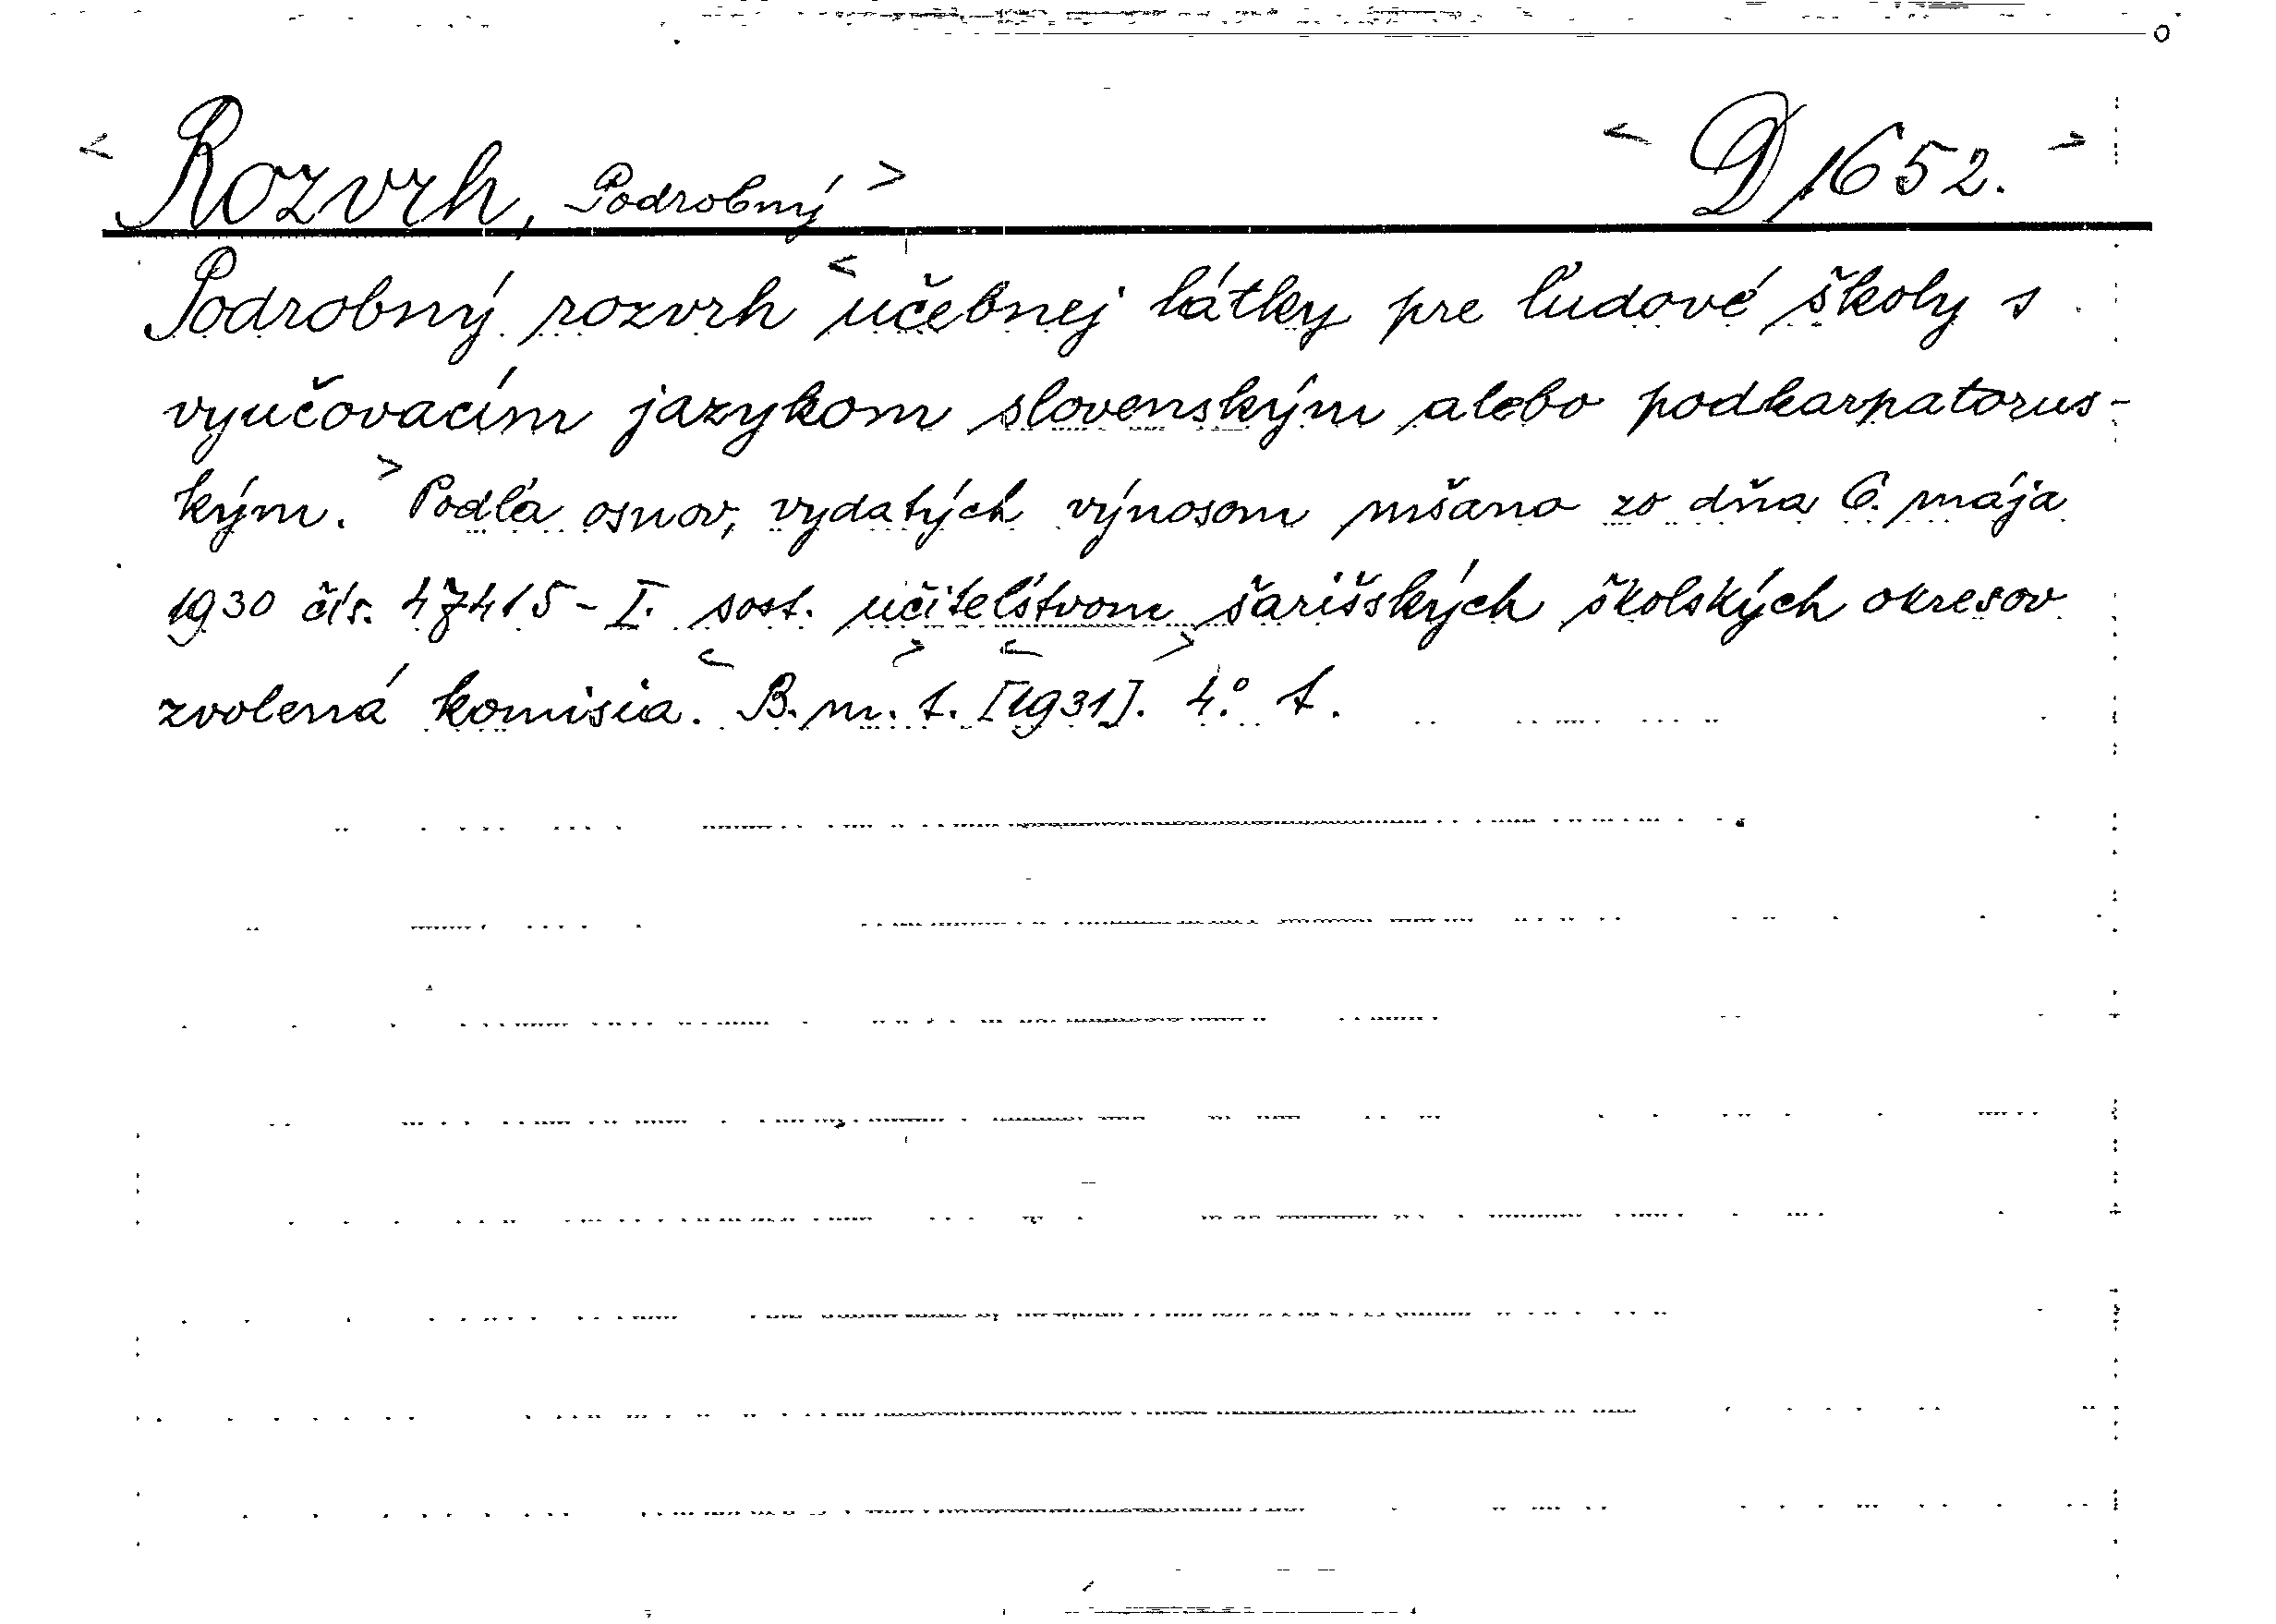 < Rozvrh, Podrobný > < D 1652. >
Podrobný rozvrh < učebnej látky pre ľudové školy s
vyučovacím jazykom slovenským alebo podkarpatorus-
kým. > Podľa osnov, vydatých výnosom mšano zo dňa 6. mája
1930 čís. 47415-I. sost. učiteľstvom šarišských školských okresov
zvolená komisia. < B. m. t. > < [1931]. > 4° t.